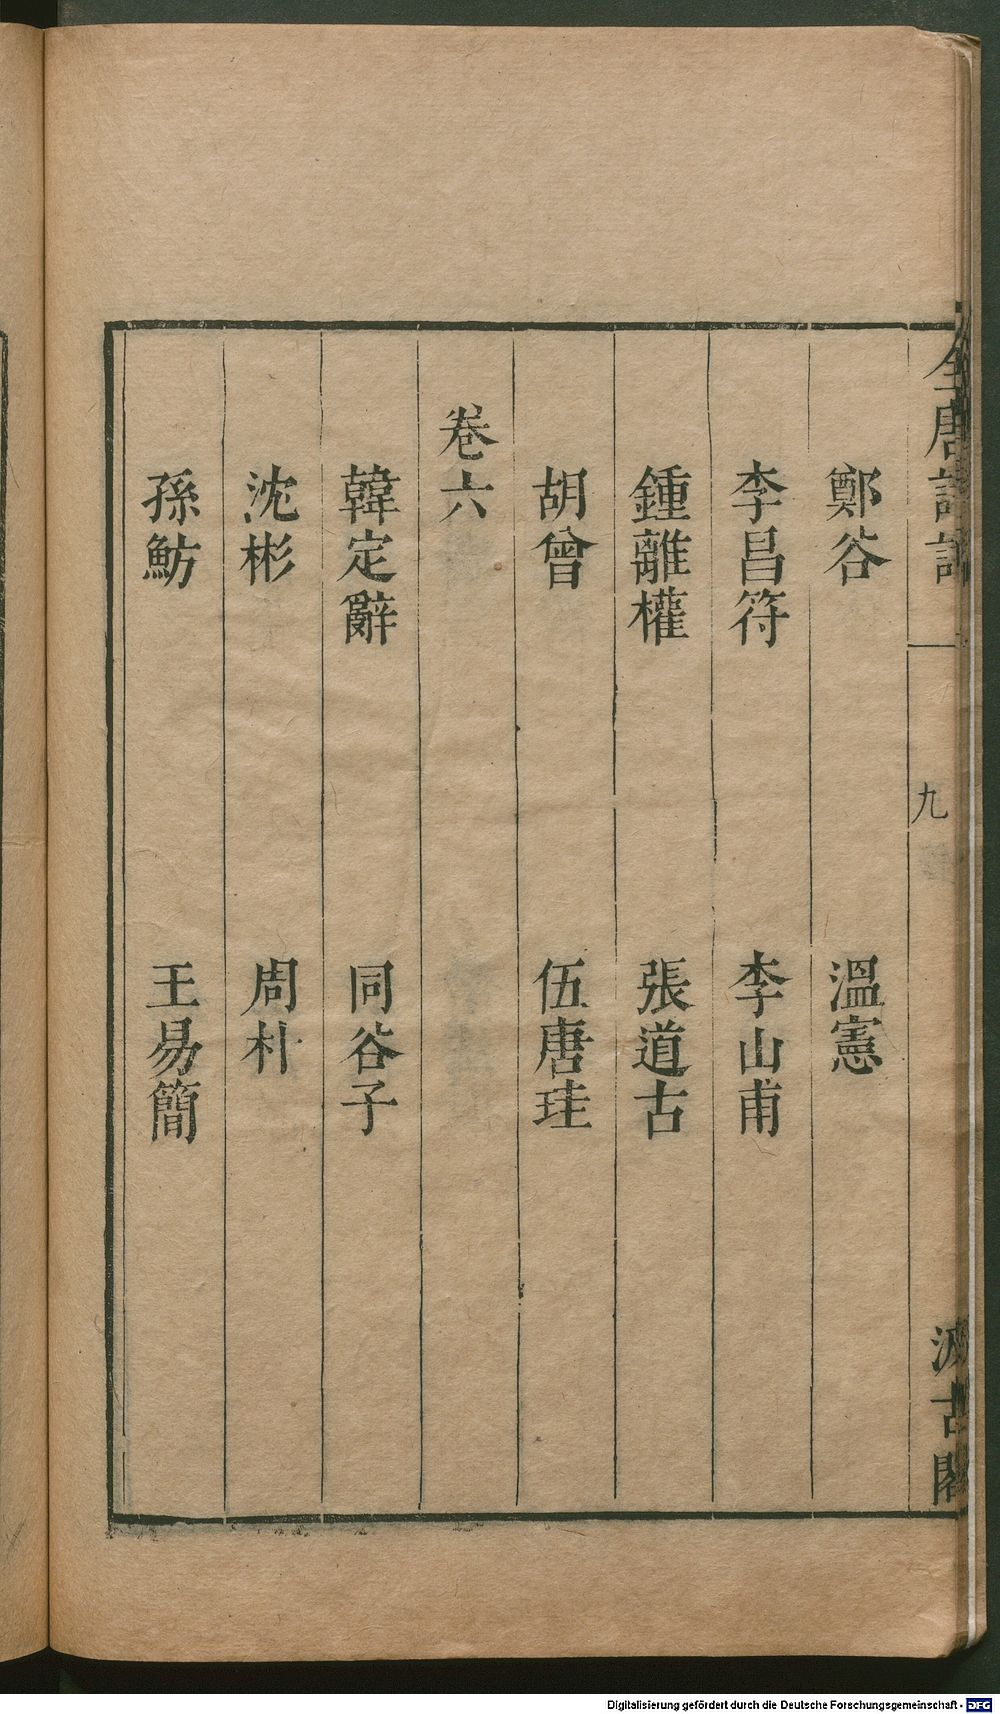 全唐詩話
九
汲古閣
鄭谷 溫憲
李昌符 李山甫
鍾離權 張道古
胡曾 伍唐珪
卷六
韓定辭 同谷子
沈彬 周朴
孫魴 王易簡
Digitalisierung gefördert durch die Deutsche Forschungsgemeinschaft - DFG